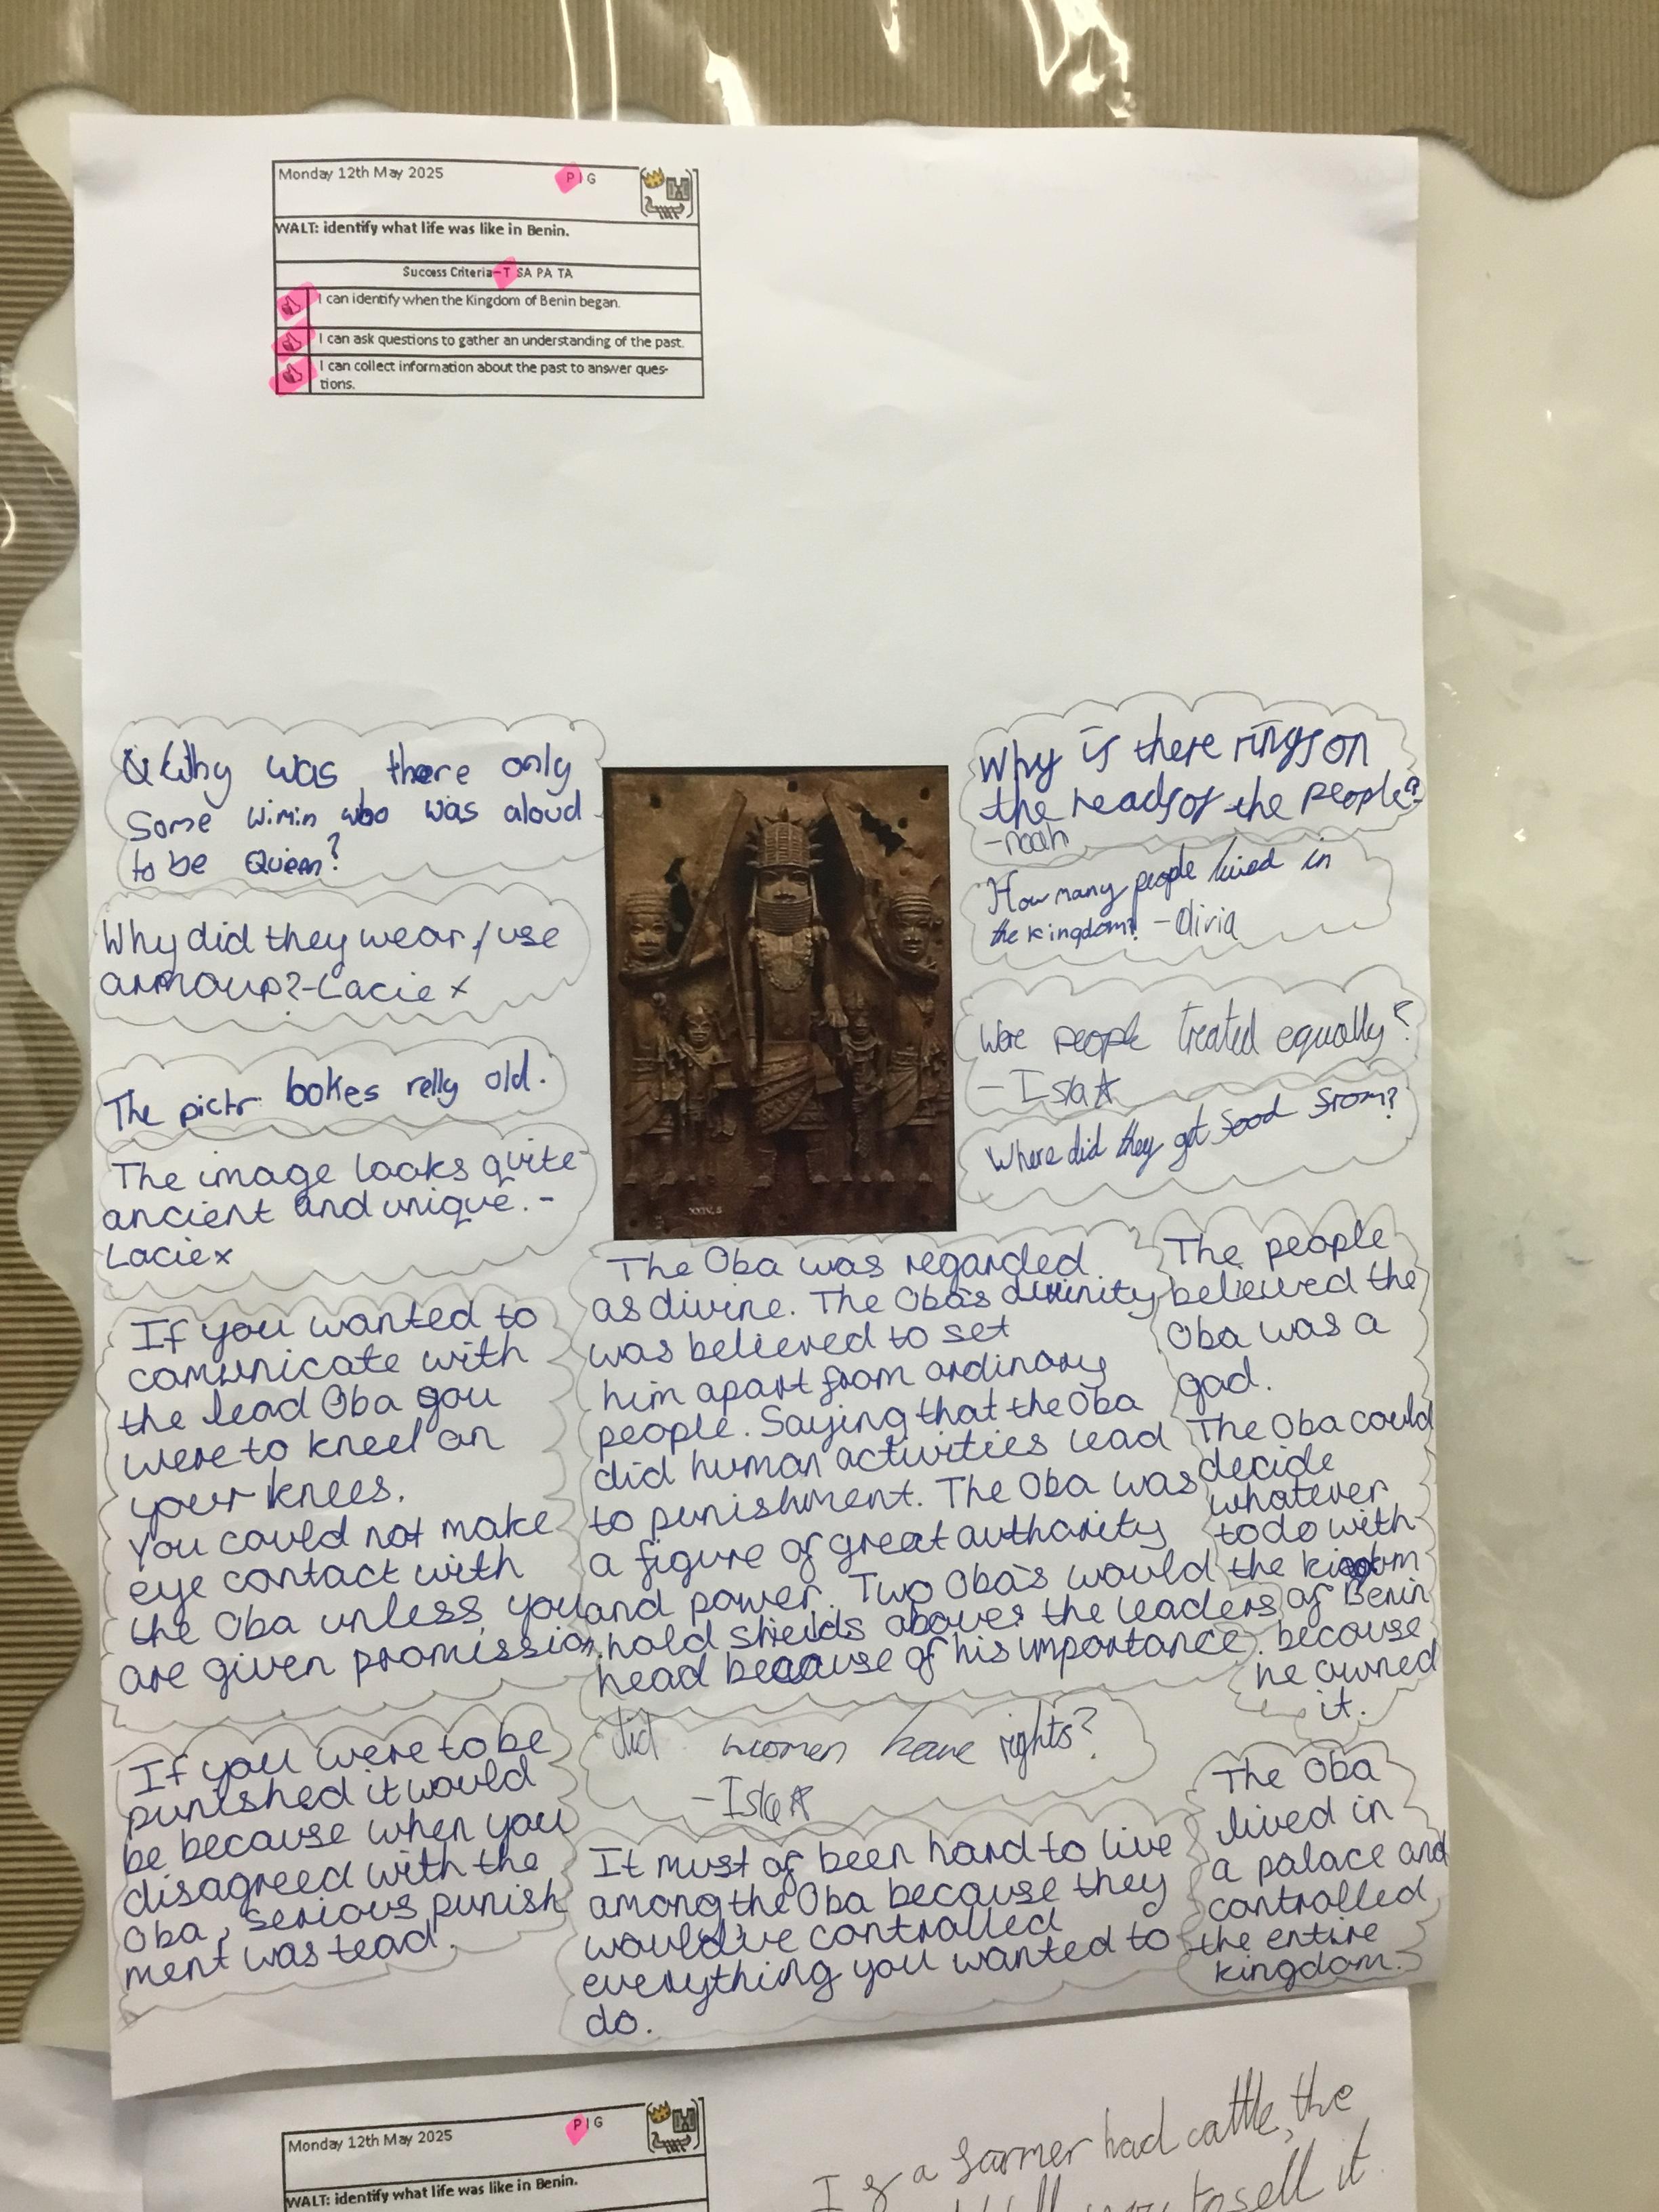 Monday 12th May 2025
P I G
WALT: identify what life was like in Benin.
Success Criteria–T SA PA TA
I can identify when the Kingdom of Benin began.
I can ask questions to gather an understanding of the past.
I can collect information about the past to answer ques-
tions.
Why was there only
some wimin who was aloud
to be Quien?
Why did they wear/use
armour?-Lacie x
The pictr lookes relly old.
The image looks quite
ancient and unique. -
Lacie x
Why is there rings on
the heads of the people?
-noah
How many people lived in
the kingdom? -Olivia
Were people treated equally?
- Isla
Where did they get food from?
XXIV, 5
If you wanted to
comunicate with
the lead Oba you
were to kneel on
your knees.
You could not make
eye contact with
the Oba unless you
are given promission.
The Oba was regarded
as divine. The Oba's divinity
was believed to set
him apart from ordinary
people. Saying that the Oba
did human activities lead
to punishment. The Oba was
a figure of great authority
and power. Two Oba's would
hold shields above the leaders
head because of his importance.
The people
believed the
Oba was a
god.
The Oba could
decide
whatever
to do with
the kingdom
of Benin
because
he owned
it.
If you were to be
punished it would
be because when you
disagreed with the
Oba, serious punish
ment was tead.
did women have rights?
- Isla
It must of been hard to live
among the Oba because they
would've controlled
everything you wanted to
do.
The Oba
lived in
a palace and
controlled
the entire
kingdom.
Monday 12th May 2025
P I G
WALT: identify what life was like in Benin.
If a farmer had cattle, the
to sell it